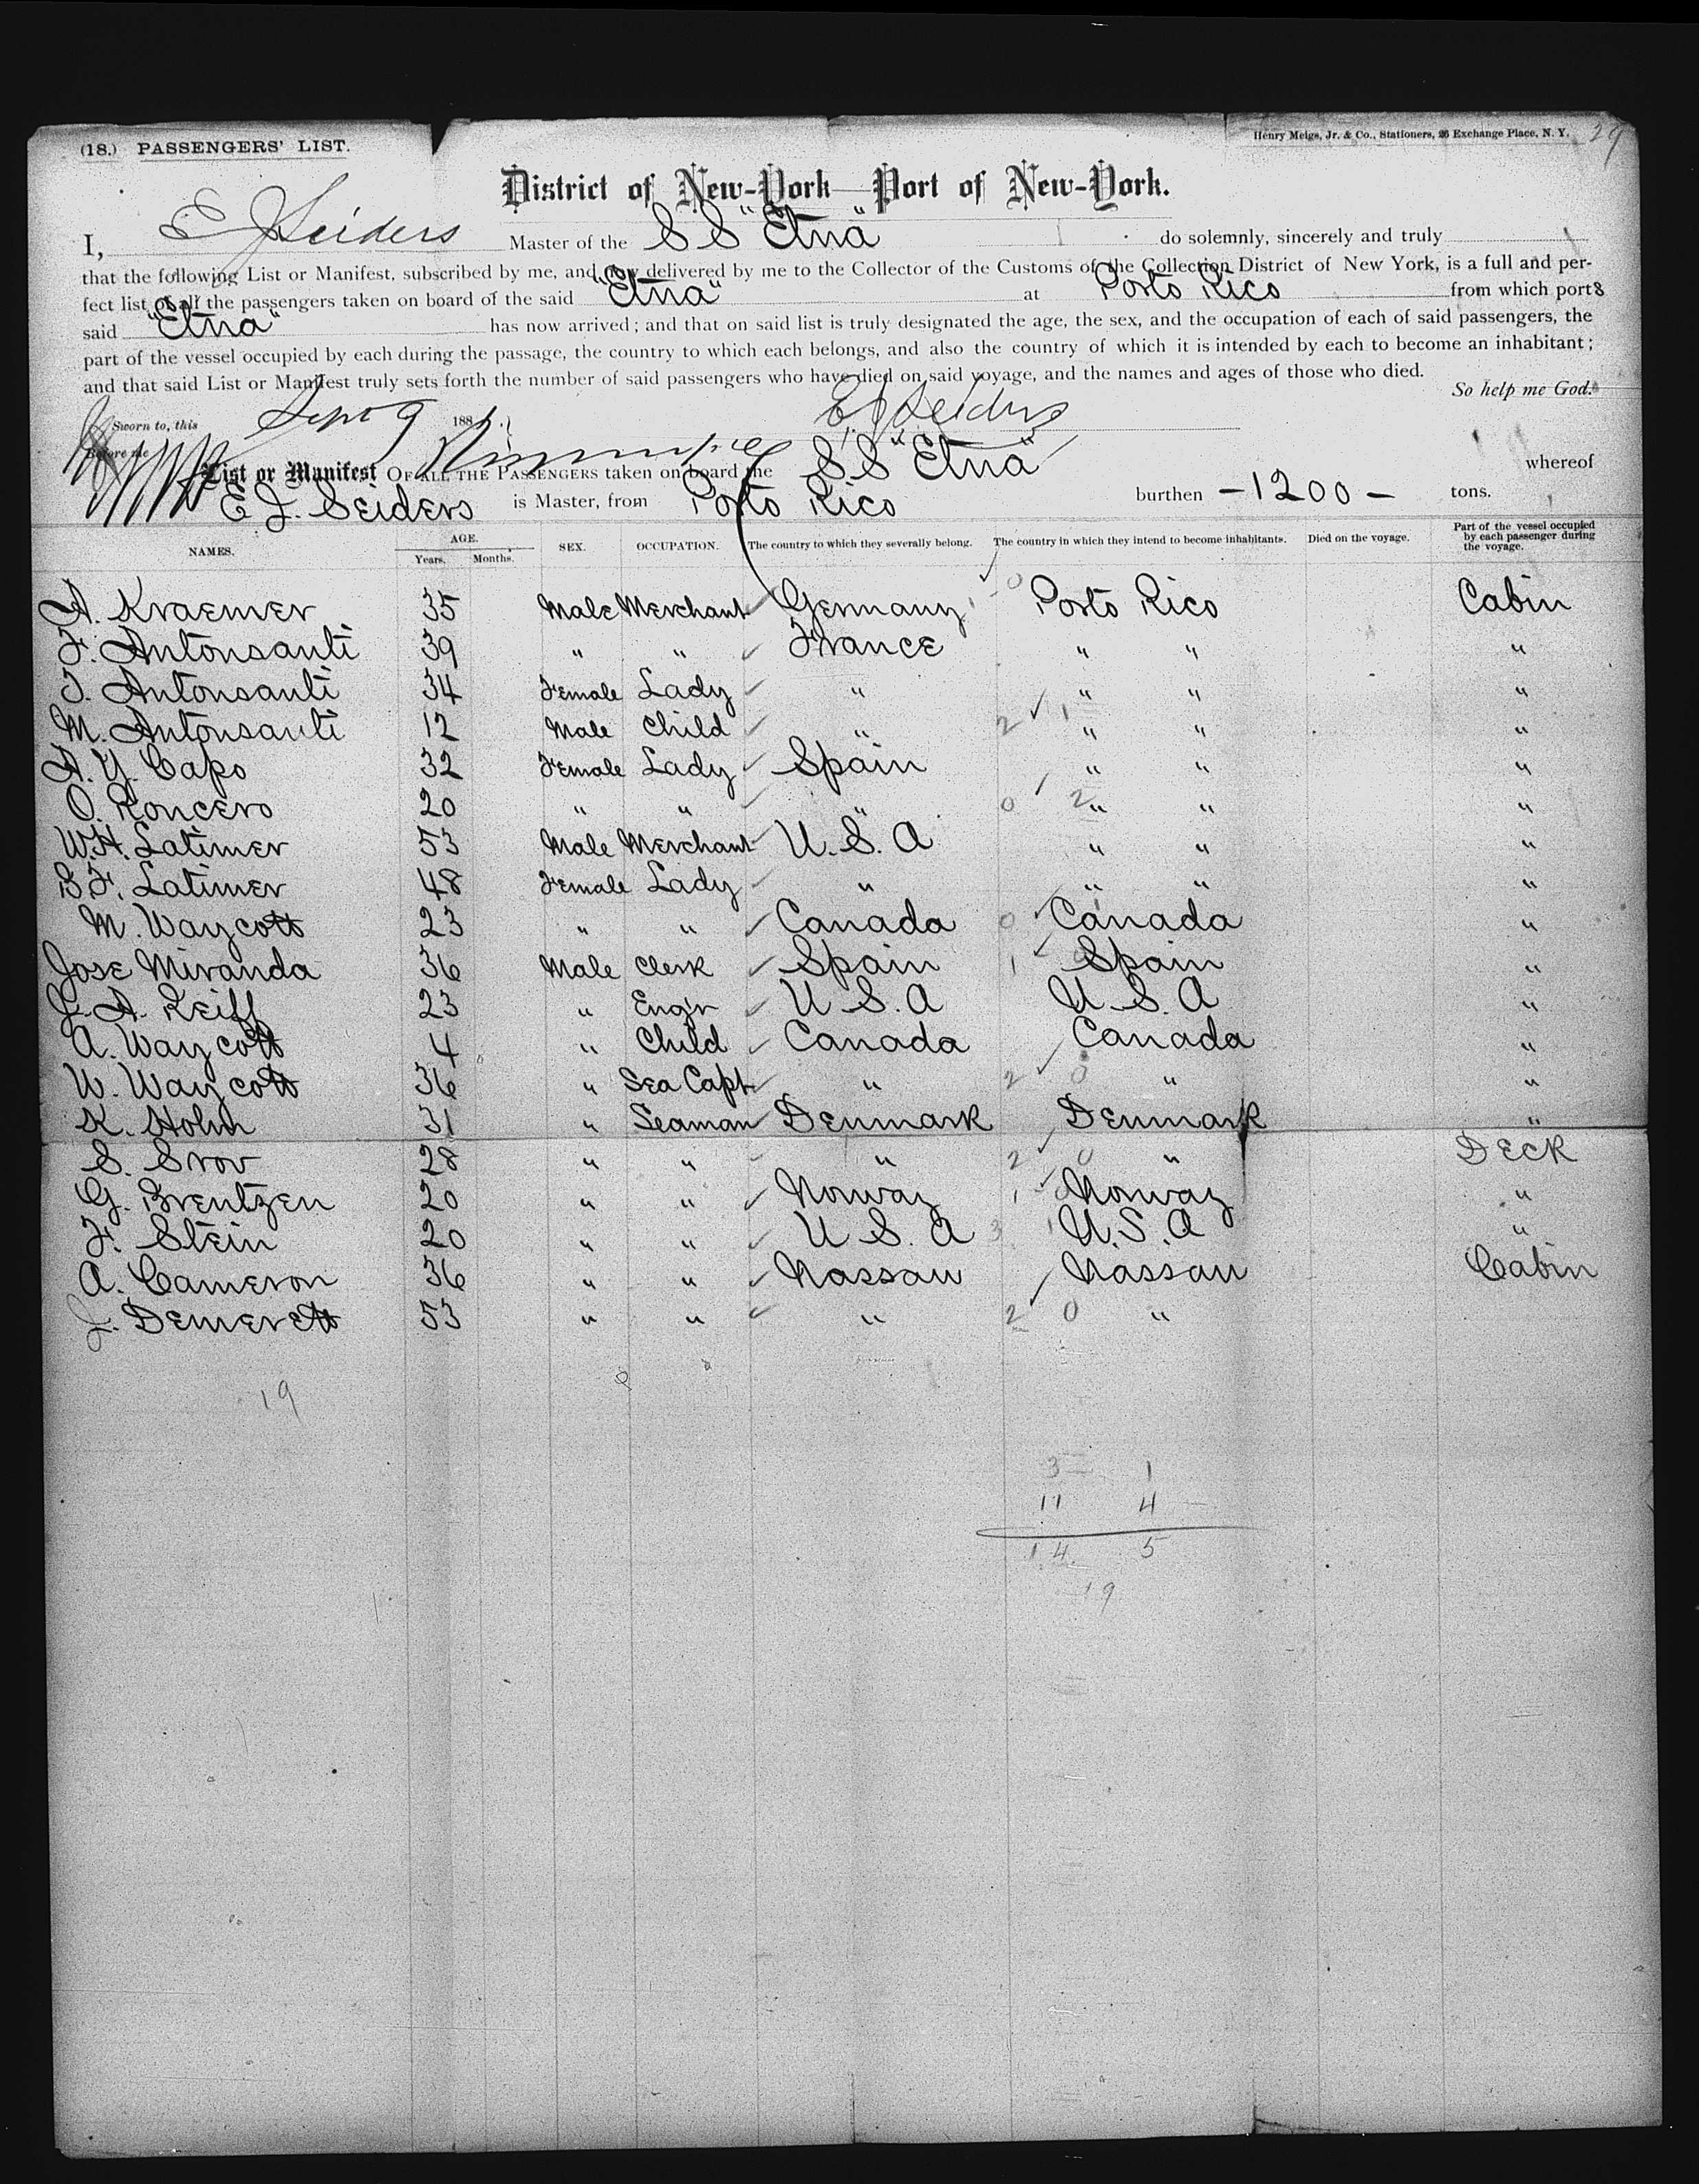 (18.) PASSENGERS' LIST.
Henry Meigs, Jr. & Co., Stationers, 26 Exchange Place, N. Y. 29
District of New-York—Port of New-York.
I, E J Seiders Master of the S S "Etna" do solemnly, sincerely and truly
that the following List or Manifest, subscribed by me, and now delivered by me to the Collector of the Customs of the Collection District of New York, is a full and per-
fect list of all the passengers taken on board of the said "Etna" at Porto Rico from which port s
said "Etna" has now arrived; and that on said list is truly designated the age, the sex, and the occupation of each of said passengers, the
part of the vessel occupied by each during the passage, the country to which each belongs, and also the country of which it is intended by each to become an inhabitant;
and that said List or Manifest truly sets forth the number of said passengers who have died on said voyage, and the names and ages of those who died.
So help me God.
Sworn to, this Sept 9 188 E J Seiders
Before me
List or Manifest OF ALL THE PASSENGERS taken on board the S S "Etna" whereof
E J. Seiders is Master, from Porto Rico burthen - 1200 - tons.
NAMES. AGE. Years. Months. SEX. OCCUPATION. The country to which they severally belong. The country in which they intend to become inhabitants. Died on the voyage. Part of the vessel occupied by each passenger during the voyage.
A. Kraemer 35 Male Merchant Germany Porto Rico Cabin
F. Antonsanti 39 " " France " " "
T. Antonsanti 34 Female Lady " " " "
M. Antonsanti 12 Male Child " 2 1 " " "
A. Y. Capo 32 Female Lady Spain " " "
O. Roncero 20 " " " 0 2 " " "
W.H. Latimer 53 Male Merchant U. S. A " " "
B. F. Latimer 48 Female Lady " " " "
M. Waycott 23 " " Canada 0 Canada "
Jose Miranda 36 Male Clerk Spain 1 Spain "
J. A. Reiff 23 " Engr U. S. A U. S. A "
A. Waycott 4 " Child Canada Canada "
W. Waycott 36 " Sea Capt " 2 0 " "
K. Holm 31 " Seaman Denmark Denmark "
S. Srov 28 " " " 2 0 " Deck
G. Brentzen 20 " " Norway 1 Norway "
F. Stein 20 " " U. S. A 3 U. S. A "
A. Cameron 36 " " Nassau Nassau Cabin
J. Demerett 53 " " " 2 0 "
19
3 1
11 4
14 5
19